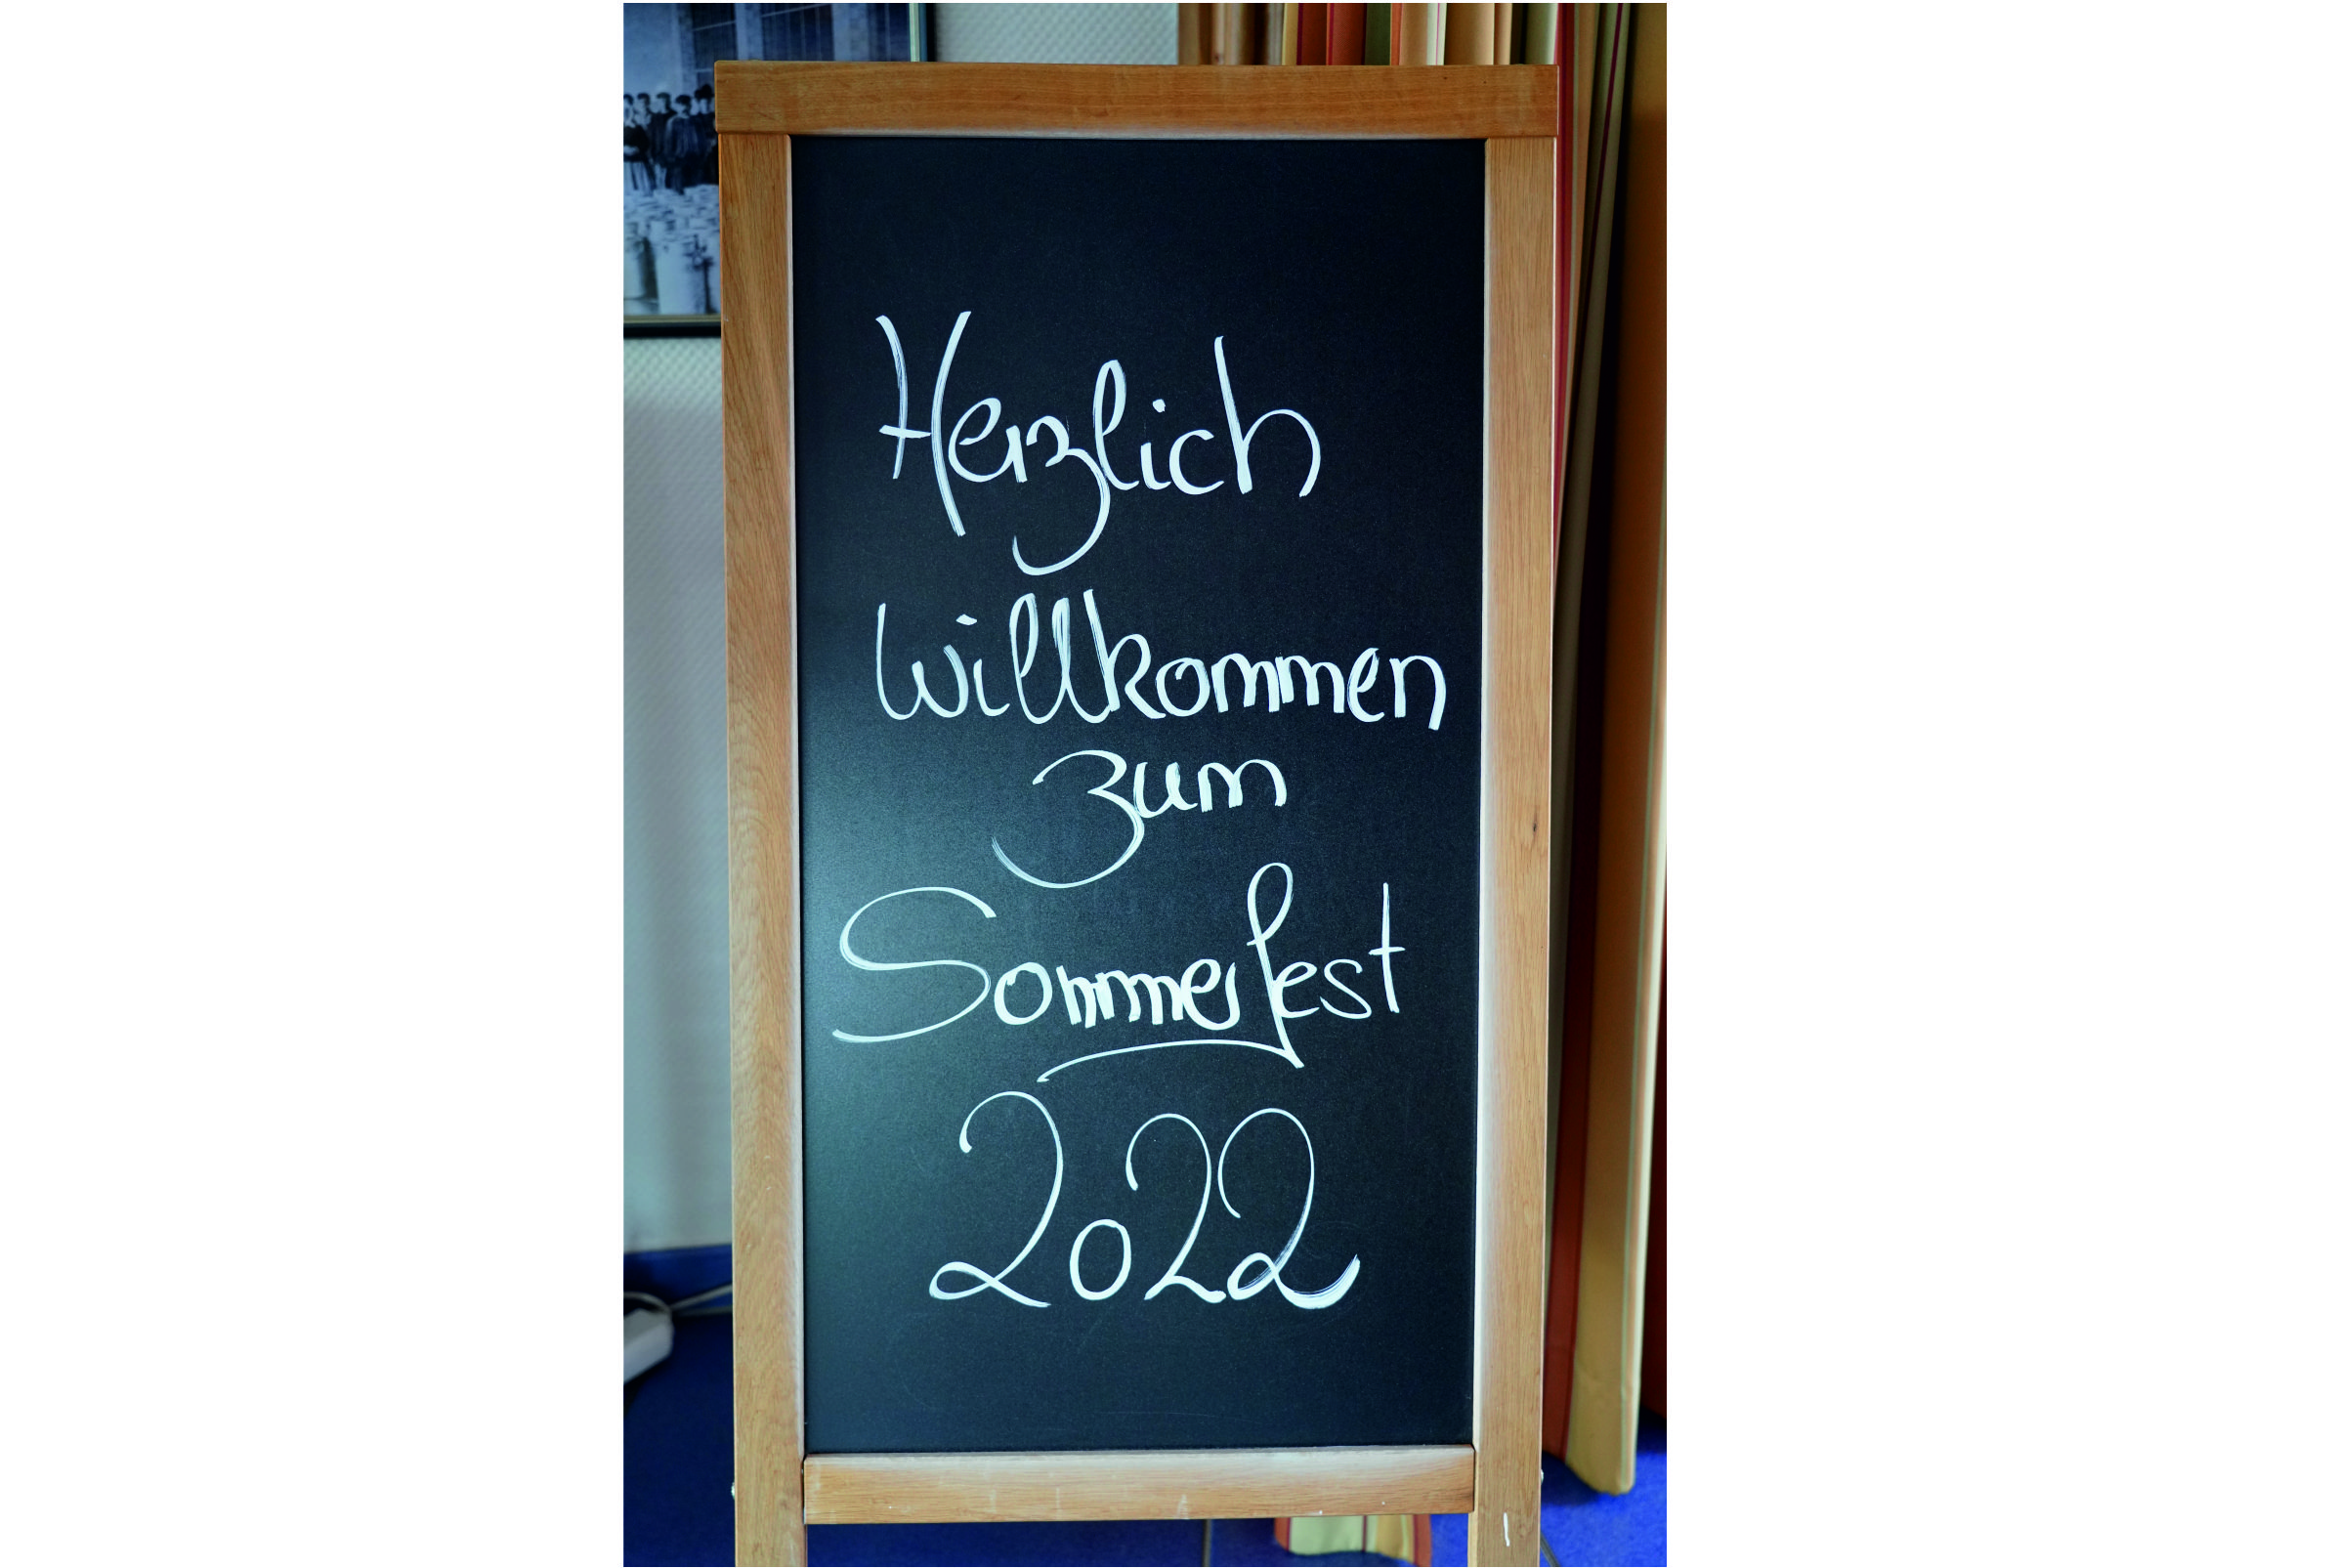 Herzlich
Willkommen
zum
Sommerfest
2022